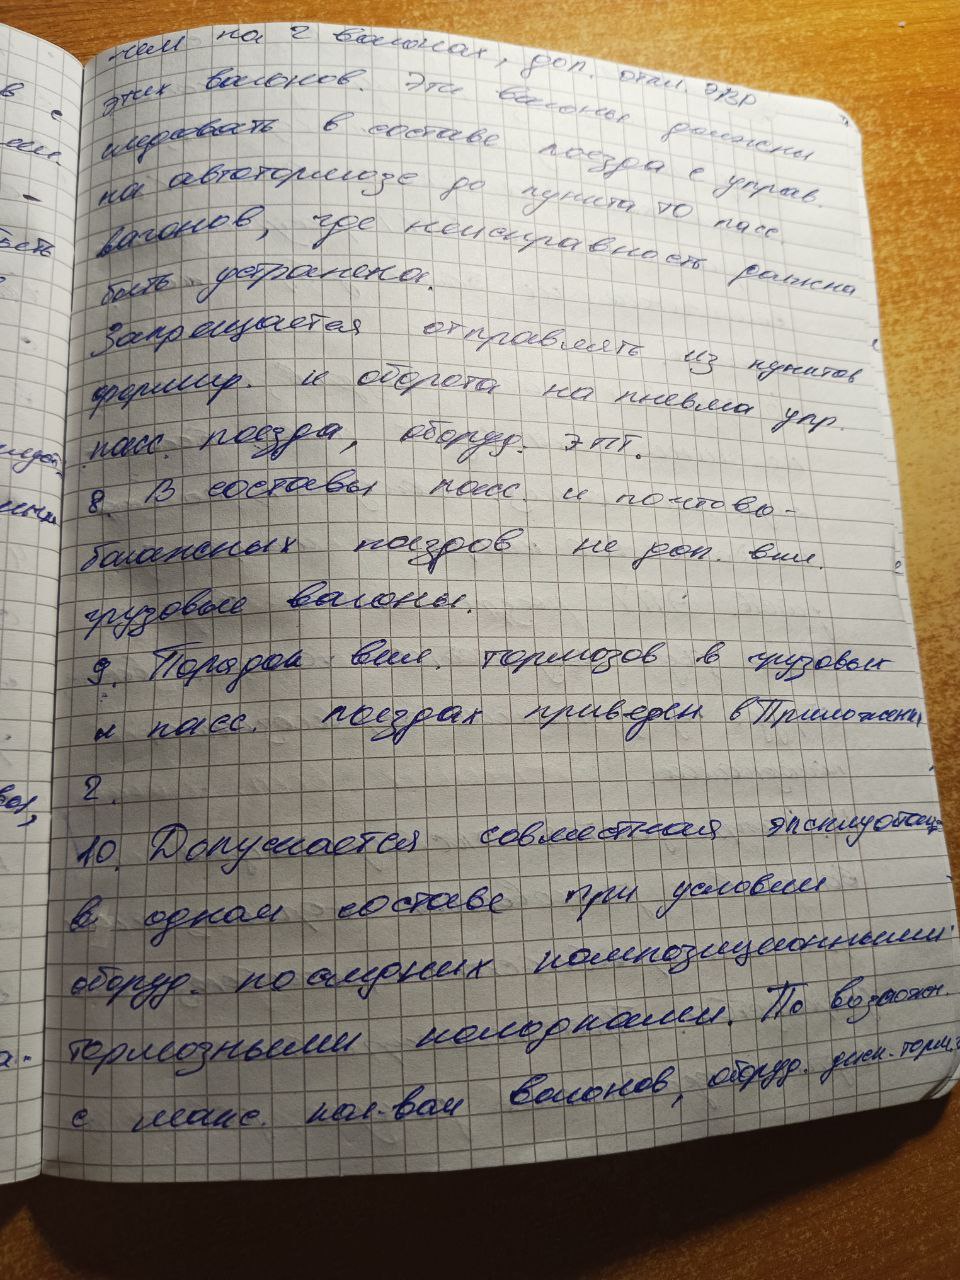 чем на 2 вагонах, доп. откл. ЭВР
этих вагонов. Эти вагоны должны
следовать в составе поезда с управ
на автотормозе до пункта ТО пасс.
вагонов, где неисправность должна
быть устранена.
Запрещается отправлять из пунктов
формир. и оборота на пневма упр.
пасс. поезда, оборуд. ЭПТ.
8. В составы пасс. и почтово-
багажных поездов не доп. вкл.
грузовые вагоны.
9. Порядок вкл. тормозов в грузовых
и пасс. поездах приведен в Приложени
2.
10. Допускается совместная эксплуатац
в одном составе при условии
оборуд. последних композиционными
тормозными колодками. По возможн.
с макс. кол-вом вагонов, оборуд. диск. торм.